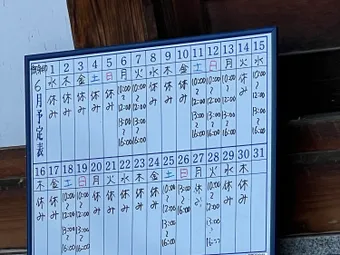 御朱印
6月予定表
1 2 3 4 5 6 7 8 9 10 11 12 13 14 15
水 木 金 土 日 月 火 水 木 金 土 日 月 火 水
休み 休み 休み 休み 休み 10:00~12:00 13:00~16:00 10:00~12:00 13:00~16:00 休み 休み 休み 10:00~12:00 13:00~16:00 10:00~12:00 13:00~16:00 10:00~12:00 13:00~16:00 休み 10:00~12:00
16 17 18 19 20 21 22 23 24 25 26 27 28 29 30 31
木 金 土 日 月 火 水 木 金 土 日 月 火 水 木
休み 休み 10:00~12:00 13:00~16:00 10:00~12:00 13:00~16:00 休み 休み 休み 休み 休み 13:00~16:00 13:00~16:00 休み 10:00~12:00 13:00~ 休み 休み